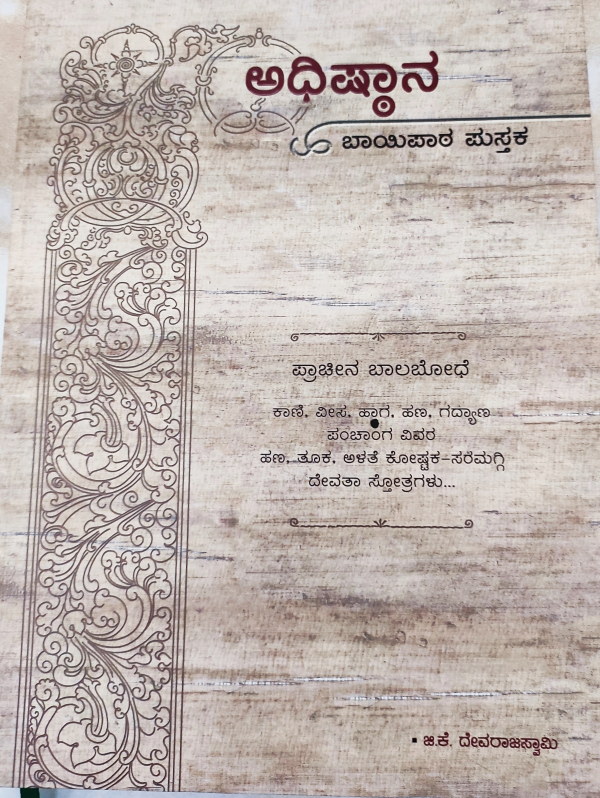 ಅಧಿಷ್ಠಾನ
ಬಾಯಿಪಾಠ ಪುಸ್ತಕ
ಪ್ರಾಚೀನ ಬಾಲಬೋಧೆ
ಕಾಣಿ, ವೀಸ, ಹಾಗ, ಹಣ, ಗದ್ಯಾಣ
ಪಂಚಾಂಗ ವಿವರ
ಹಣ, ತೂಕ, ಅಳತೆ ಕೋಷ್ಟಕ-ಸರಮಗ್ಗಿ
ದೇವತಾ ಸ್ತೋತ್ರಗಳು...
▪ ಜಿ.ಕೆ. ದೇವರಾಜಸ್ವಾಮಿ